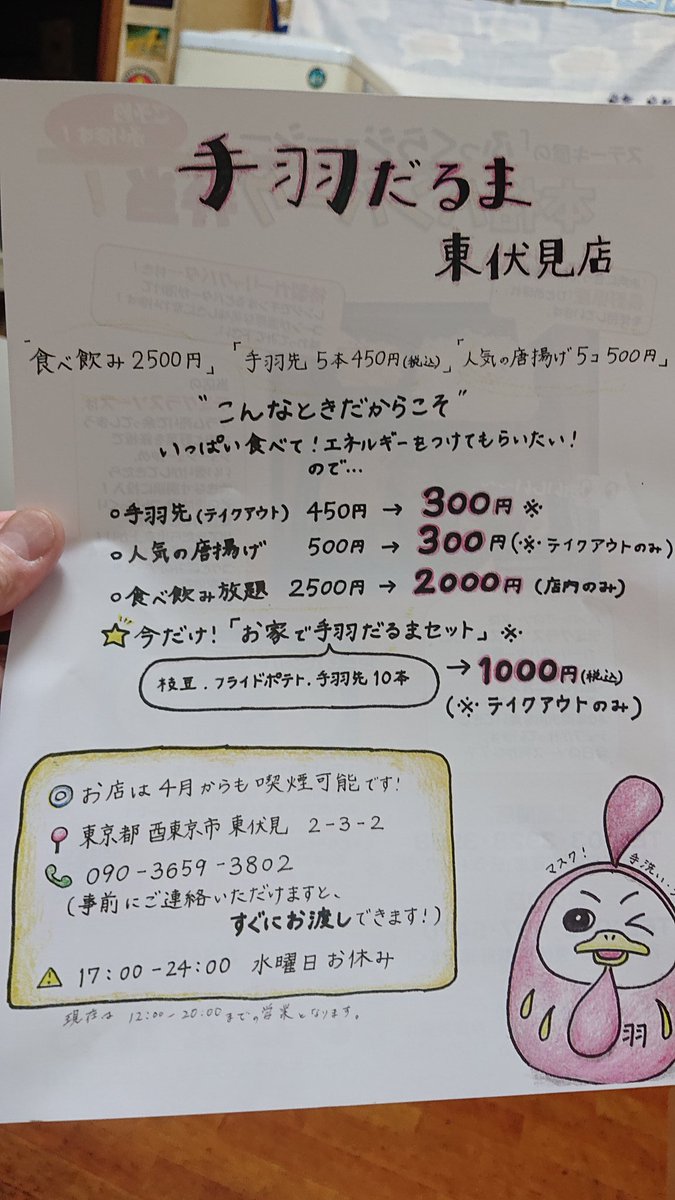 手羽だるま
東伏見店
「食べ飲み2500円」「手羽先 5本450円(税込)」「人気の唐揚げ5コ500円」
"こんなときだからこそ"
いっぱい食べて!エネルギーをつけてもらいたい!
ので…
○手羽先(テイクアウト) 450円 → 300円 ※
○人気の唐揚げ 500円 → 300円(※テイクアウトのみ)
○食べ飲み放題 2500円 → 2000円 (店内のみ)
☆今だけ!「お家で手羽だるまセット」※
枝豆.フライドポテト.手羽先10本 → 1000円(税込)
(※テイクアウトのみ)
◎お店は4月からも喫煙可能です!
東京都 西東京市 東伏見 2-3-2
090-3659-3802
(事前にご連絡いただけますと、
すぐにお渡しできます!)
⚠ 17:00-24:00 水曜日お休み
現在は 12:00-20:00までの営業となります。
マスク!
手洗い
羽